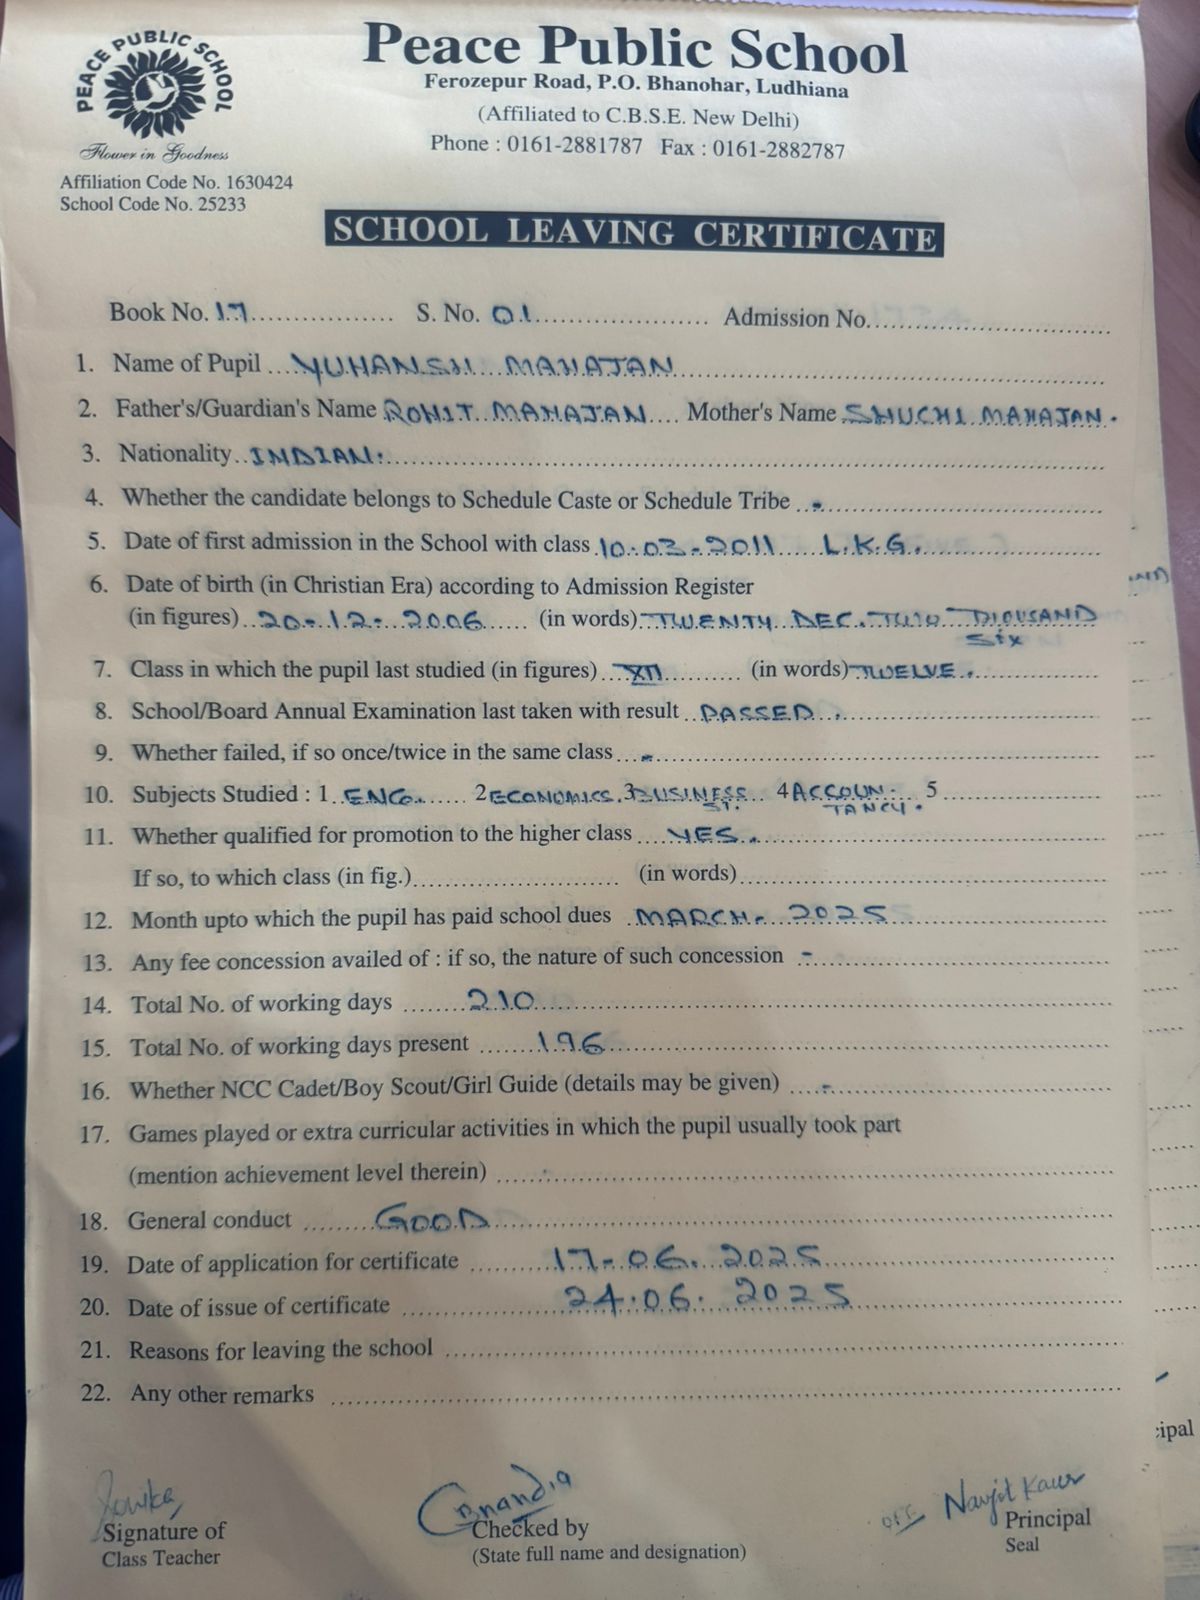 PEACE PUBLIC SCHOOL
Flower in Goodness
Affiliation Code No. 1630424
School Code No. 25233
Peace Public School
Ferozepur Road, P.O. Bhanohar, Ludhiana
(Affiliated to C.B.S.E. New Delhi)
Phone : 0161-2881787 Fax : 0161-2882787
SCHOOL LEAVING CERTIFICATE
Book No. 17 S. No. 01 Admission No.
1. Name of Pupil YUHANSH MAHAJAN
2. Father's/Guardian's Name ROHIT MAHAJAN Mother's Name SHUCHI MAHAJAN.
3. Nationality INDIAN.
4. Whether the candidate belongs to Schedule Caste or Schedule Tribe -
5. Date of first admission in the School with class 10-03-2011 L.K.G.
6. Date of birth (in Christian Era) according to Admission Register
(in figures) 20-12-2006 (in words) TWENTY DEC. TWO THOUSAND
Six
7. Class in which the pupil last studied (in figures) XII (in words) TWELVE.
8. School/Board Annual Examination last taken with result PASSED.
9. Whether failed, if so once/twice in the same class -
10. Subjects Studied : 1 ENG. 2 ECONOMICS. 3 BUSINESS ST. 4 ACCOUN-TANCY. 5
11. Whether qualified for promotion to the higher class YES.
If so, to which class (in fig.) (in words)
12. Month upto which the pupil has paid school dues MARCH- 2025
13. Any fee concession availed of : if so, the nature of such concession -
14. Total No. of working days 210
15. Total No. of working days present 196
16. Whether NCC Cadet/Boy Scout/Girl Guide (details may be given) -
17. Games played or extra curricular activities in which the pupil usually took part
(mention achievement level therein)
18. General conduct GOOD
19. Date of application for certificate 17-06.2025
20. Date of issue of certificate 24.06.2025
21. Reasons for leaving the school
22. Any other remarks
Navjit Kaur
Signature of
Class Teacher
Checked by
(State full name and designation)
Principal
Seal
cipal